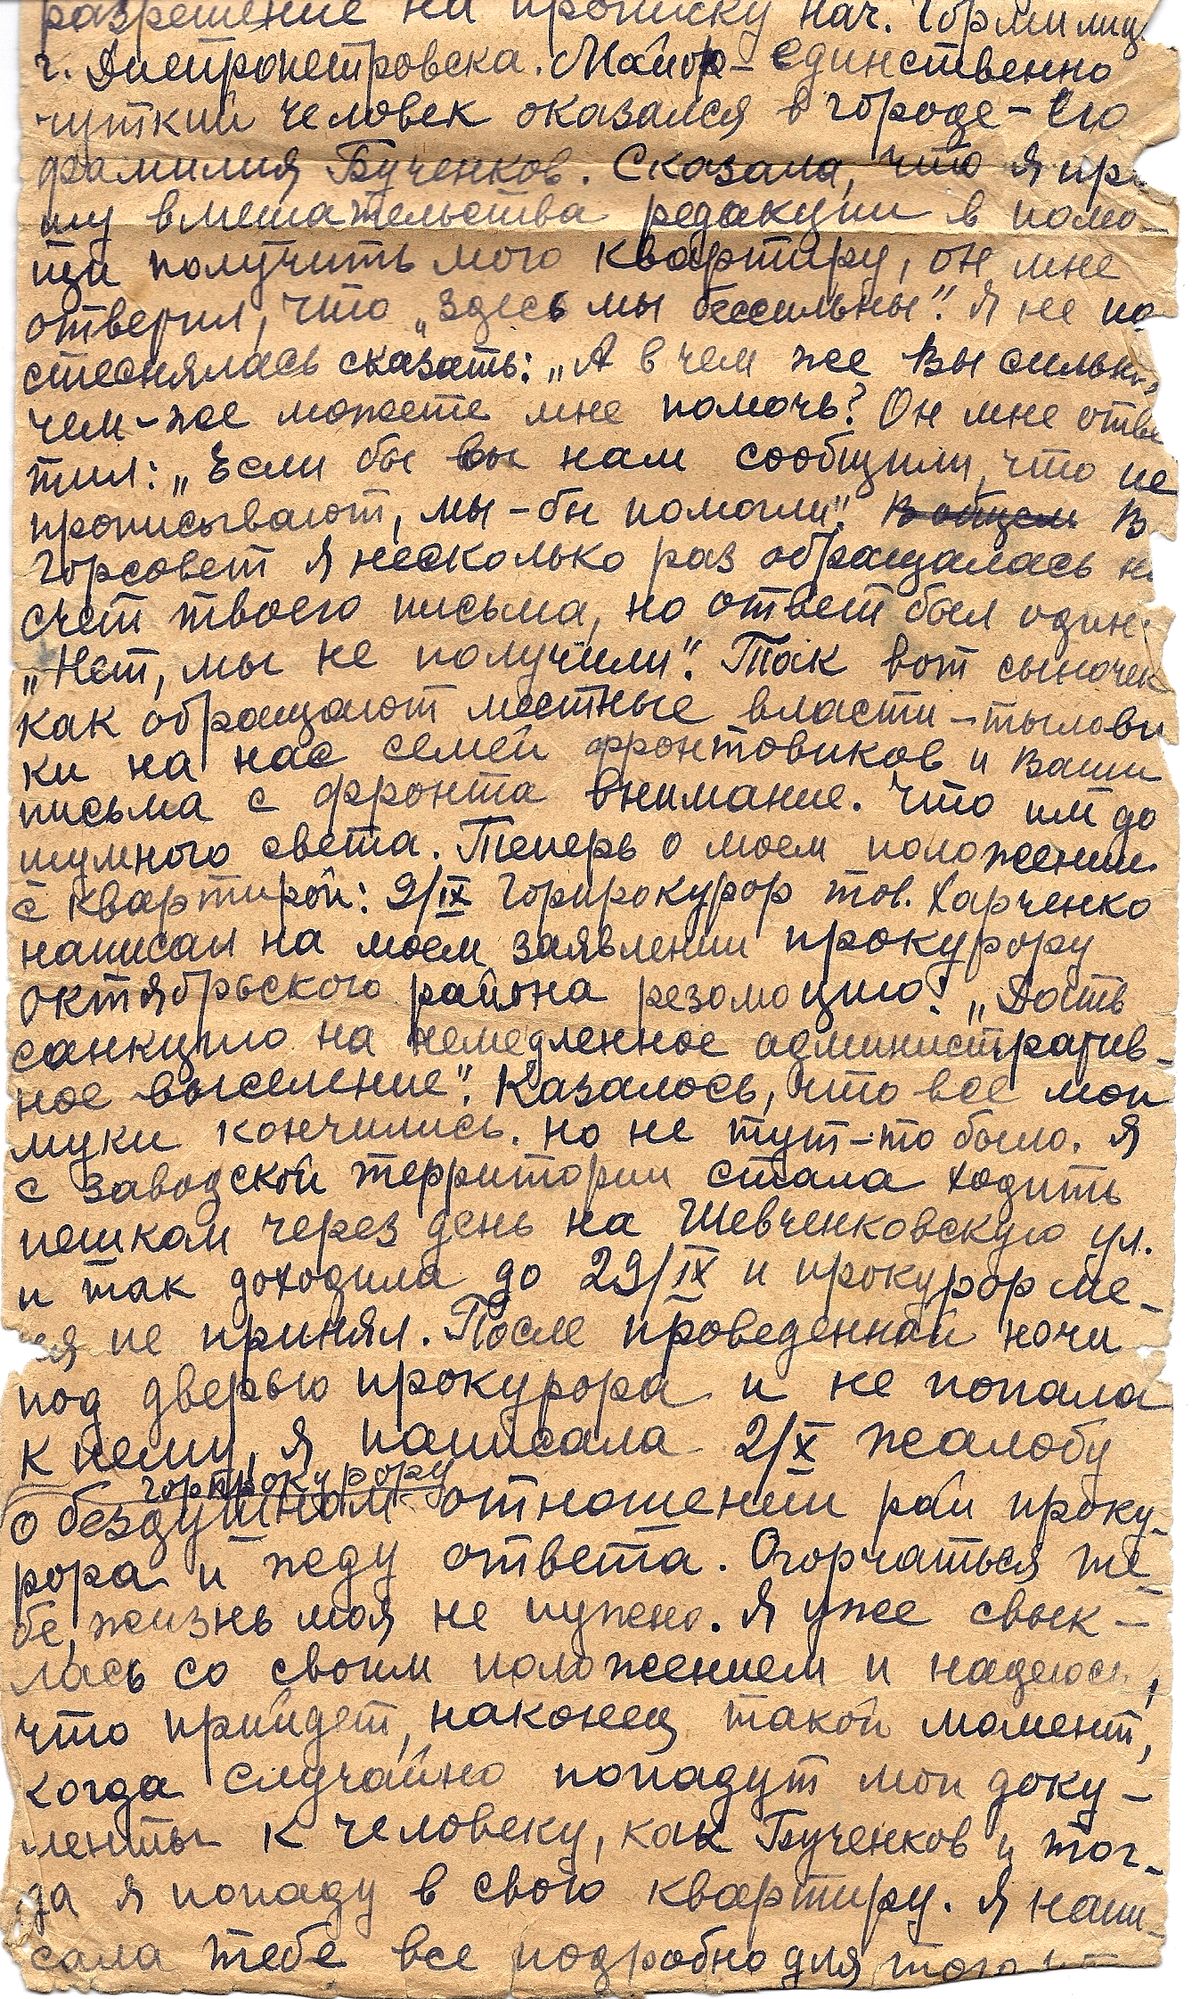 разрешение на прописку нач. Гормилиц.
г. Днепропетровска. Майор - единственно
чуткий человек оказался в городе - его
фамилия Бученков. Сказала, что я про
шу вмешательства редакции в помо-
щи получить мою квартиру, он мне
ответил, что „здесь мы бессильны". Я не по
стеснялась сказать: „А в чем же Вы сильны,
чем-же можете мне помочь? Он мне отве
тил: „Если бы вы нам сообщили, что не
прописывают, мы-бы помогли". В общем В
Горсовет я несколько раз обращалась на
счет твоего письма, но ответ был один:
„Нет, мы не получили". Так вот сыночек
как обращают местные власти - тылови
ки на нас семей фронтовиков и Ваши
письма с фронта внимание. Что им до
шумного света. Теперь о моем положении
с квартирой: 9/IX Горпрокурор тов. Харченко
написал на моем заявлении прокурору
октябрьского района резолюцию: „Дать
санкцию на немедленное административ-
ное выселение". Казалось, что все мои
муки кончились. но не тут-то было. Я
с заводской территории стала ходить
пешком через день на Шевченковскую ул.
и так доходила до 29/IX и прокурор ме-
ня не принял. После проведенной ночи
под дверью прокурора и не попала
к нему, я написала 2/X жалобу
горпрокурору
о бездушном отношении рай проку-
рора и жду ответа. Огорчаться те-
бе, жизнь моя не нужно. Я уже свык-
лась со своим положением и надеюсь,
что прийдет, наконец такой момент,
когда случайно попадут мои доку-
менты к человеку, как Бученков и тог-
да я попаду в свою квартиру. Я напи-
сала тебе все подробно для того